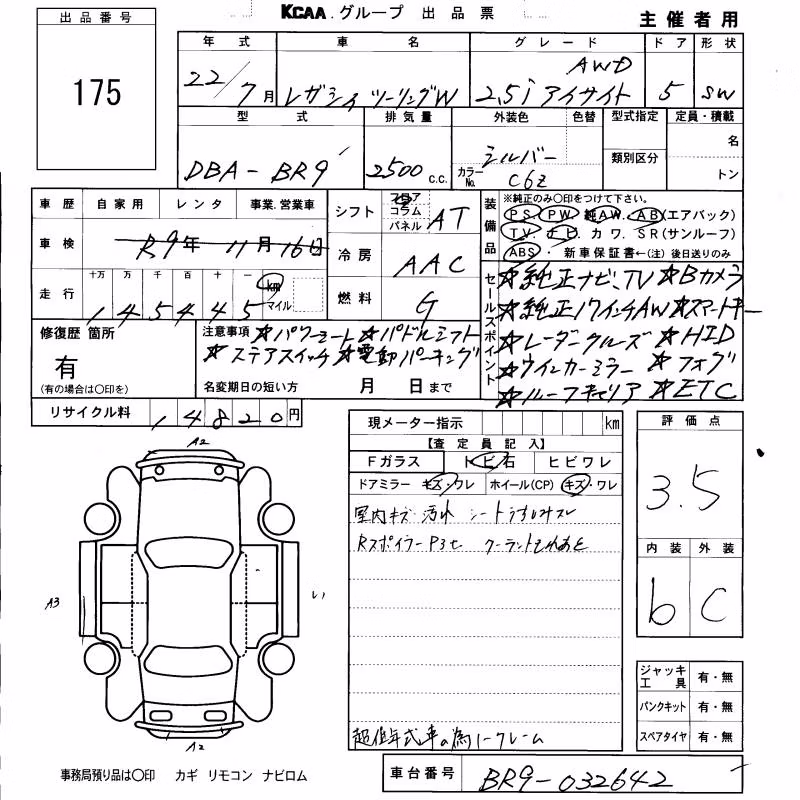 KCAA.グループ 出品票
主催者用
出品番号
175
年式 車名 グレード ドア 形状
22/7月 レガシィ ツーリングW 2.5i アイサイト AWD 5 SW
型式 排気量 外装色 色替 型式指定 定員・積載
DBA-BR9 2500 c.c. シルバー 類別区分 名
カラーNo. C6Z トン
車歴 自家用 レンタ 事業.営業車
車検 R9年 11月 16日
走行 十万 万 千 百 十 一
1 4 5 4 4 5 km マイル
シフト フロア コラム パネル AT
冷房 AAC
燃料 G
装備品 ※純正のみ〇印をつけて下さい。
PS. PW. 純AW. AB(エアバック)
TV. ナビ. カワ. SR(サンルーフ)
ABS・新車保証書←(注)後日送りのみ
セールスポイント
☆純正ナビ、TV ☆Bカメラ
☆純正17インチAW ☆スマートキー
☆レーダークルーズ ☆HID
☆ウインカーミラー ☆フォグ
☆ルーフキャリア ☆ETC
修復歴 箇所
有
(有の場合は〇印を)
注意事項 ☆パワーシート ☆パドルシフト
☆ステアスイッチ ☆電動パーキング
名変期日の短い方 月 日まで
リサイクル料 14820円
現メーター指示 km
【査定員記入】
Fガラス トビ石 ヒビワレ
ドアミラー キズ・ワレ ホイール(CP) キズ・ワレ
室内キズ 汚れ シートうすレ スレ
Rスポイラー P3セ クーラントもれあと
超低年式車の為ノークレーム
評価点
3.5
内装 外装
b C
ジャッキ工具 有・無
パンクキット 有・無
スペアタイヤ 有・無
A2
A3
A2
事務局預り品は〇印 カギ リモコン ナビロム
車台番号 BR9-032642